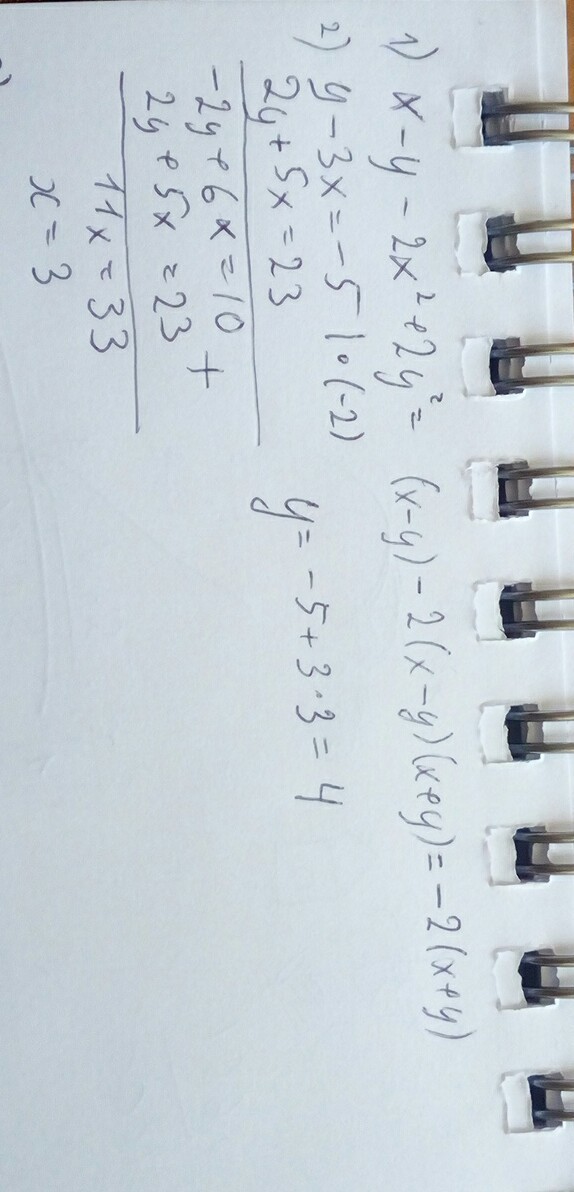 1) x - y - 2x² + 2y² = (x-y) - 2(x-y)(x+y) = -2(x+y)
2) y - 3x = -5 |·(-2)
2y + 5x = 23
-2y + 6x = 10 +
2y + 5x = 23
11x = 33
x = 3
y = -5 + 3·3 = 4